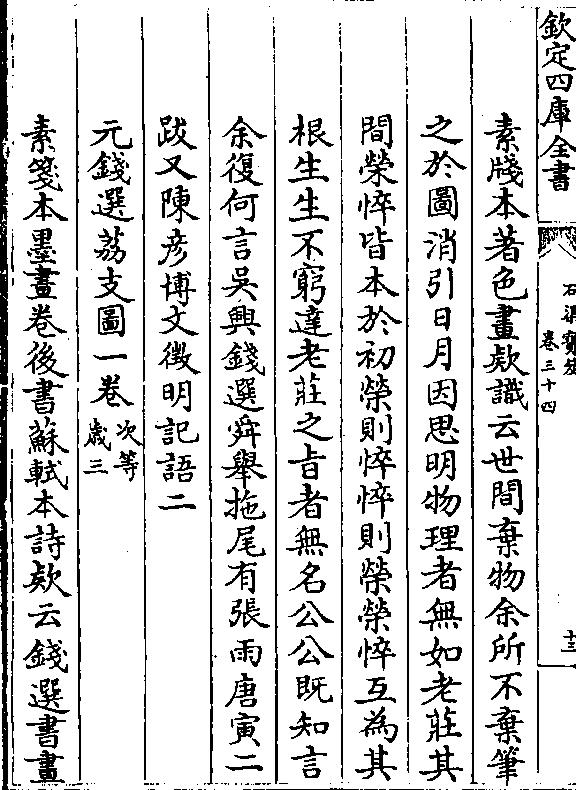 欽定四庫全書
石渠寳笈
卷三十四
十三
素牋本著色畫欵識云世間棄物余所不棄筆
之於圖消引日月因思明物理者無如老莊其
間榮悴皆本於初榮則悴悴則榮榮悴互為其
根生生不窮達老莊之旨者無名公公既知言
余復何言吳興錢選舜舉拖尾有張雨唐寅二
跋又陳彥博文徵明記語二
元錢選荔支圖一卷次等
歲三
素箋本墨畫卷後書蘇軾本詩欵云錢選書畫